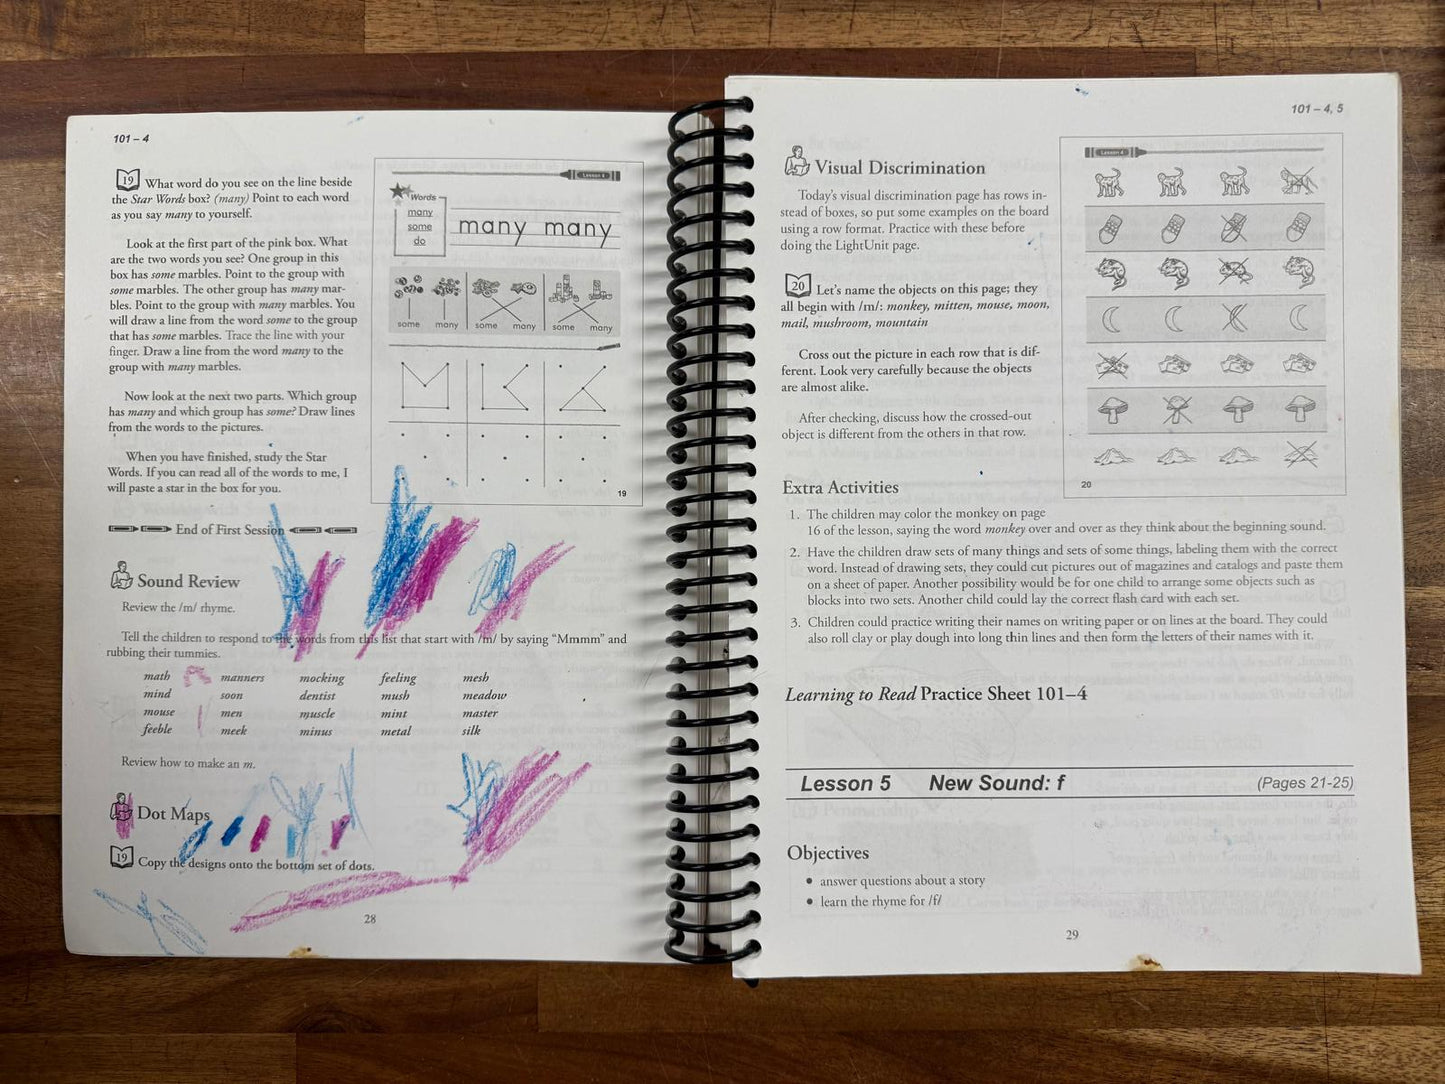 101 – 4
19 What word do you see on the line beside
the Star Words box? (many) Point to each word
as you say many to yourself.
Look at the first part of the pink box. What
are the two words you see? One group in this
box has some marbles. Point to the group with
some marbles. The other group has many mar-
bles. Point to the group with many marbles. You
will draw a line from the word some to the group
that has some marbles. Trace the line with your
finger. Draw a line from the word many to the
group with many marbles.
Now look at the next two parts. Which group
has many and which group has some? Draw lines
from the words to the pictures.
When you have finished, study the Star
Words. If you can read all of the words to me, I
will paste a star in the box for you.
Lesson 4
Words
many
some
do
many many
some many some many some many
19
End of First Session
Sound Review
Review the /m/ rhyme.
Tell the children to respond to the words from this list that start with /m/ by saying “Mmmm” and
rubbing their tummies.
math manners mocking feeling mesh
mind soon dentist mush meadow
mouse men muscle mint master
feeble meek minus metal silk
Review how to make an m.
Dot Maps
19 Copy the designs onto the bottom set of dots.
28
101 – 4, 5
Visual Discrimination
Today’s visual discrimination page has rows in-
stead of boxes, so put some examples on the board
using a row format. Practice with these before
doing the LightUnit page.
20 Let’s name the objects on this page; they
all begin with /m/: monkey, mitten, mouse, moon,
mail, mushroom, mountain
Cross out the picture in each row that is dif-
ferent. Look very carefully because the objects
are almost alike.
After checking, discuss how the crossed-out
object is different from the others in that row.
Lesson 4
20
Extra Activities
1. The children may color the monkey on page
16 of the lesson, saying the word monkey over and over as they think about the beginning sound.
2. Have the children draw sets of many things and sets of some things, labeling them with the correct
word. Instead of drawing sets, they could cut pictures out of magazines and catalogs and paste them
on a sheet of paper. Another possibility would be for one child to arrange some objects such as
blocks into two sets. Another child could lay the correct flash card with each set.
3. Children could practice writing their names on writing paper or on lines at the board. They could
also roll clay or play dough into long thin lines and then form the letters of their names with it.
Learning to Read Practice Sheet 101–4
Lesson 5 New Sound: f (Pages 21-25)
Objectives
• answer questions about a story
• learn the rhyme for /f/
29